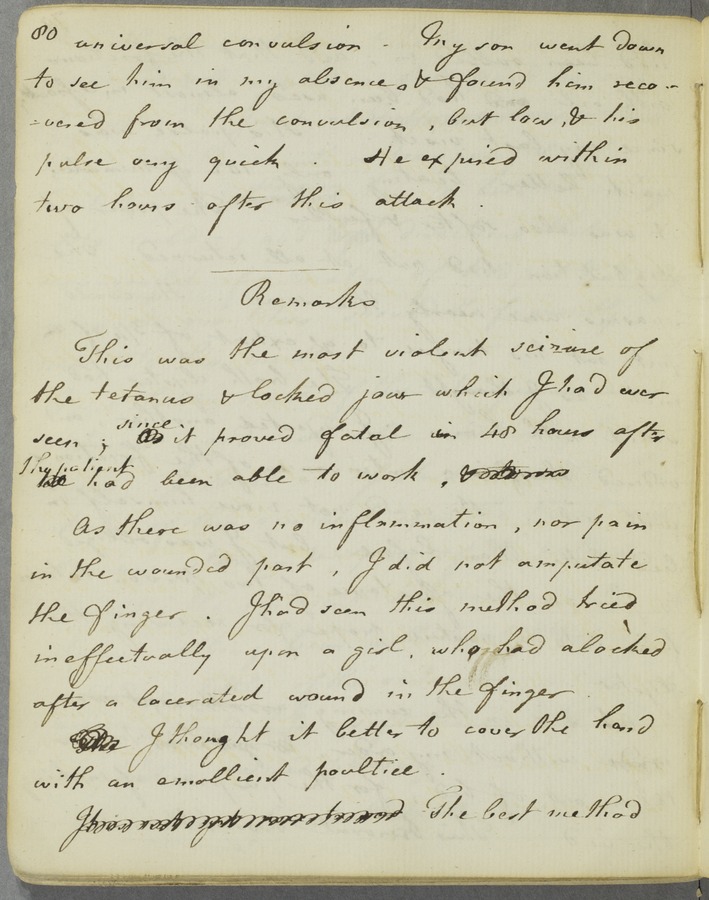 80
universal convulsion. My son went down
to see him in my absence, & found him reco-
-vered from the convulsion, but low, & his
pulse very quick. He expired within
two hours after this attack.
Remarks
This was the most violent seizure of
the tetanus & locked jaw which I had ever
seen; since it proved fatal in 48 hours after
The patient had been able to work,
As there was no inflammation, nor pain
in the wounded part, I did not amputate
the finger. I had seen this method tried
ineffectually upon a girl, who had a locked
after a lacerated wound in the finger.
I thought it better to cover the hand
with an emollient poultice.
The best method